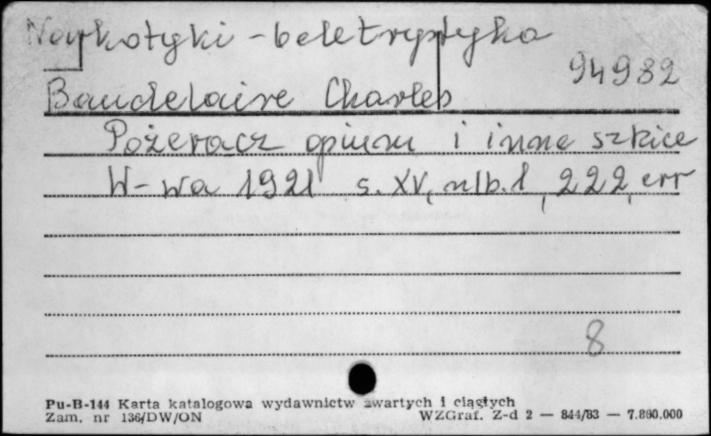 Narkotyki - beletrystyka
94982
Baudelaire Charles
Pożeracz opium i inne szkice
W-wa 1921 s. XV, nlb. 1, 222, err
8
Pu-B-144 Karta katalogowa wydawnictw zwartych i ciągłych
Zam. nr 136/DW/ON WZGraf. Z-d 2 — 844/83 — 7.800.000